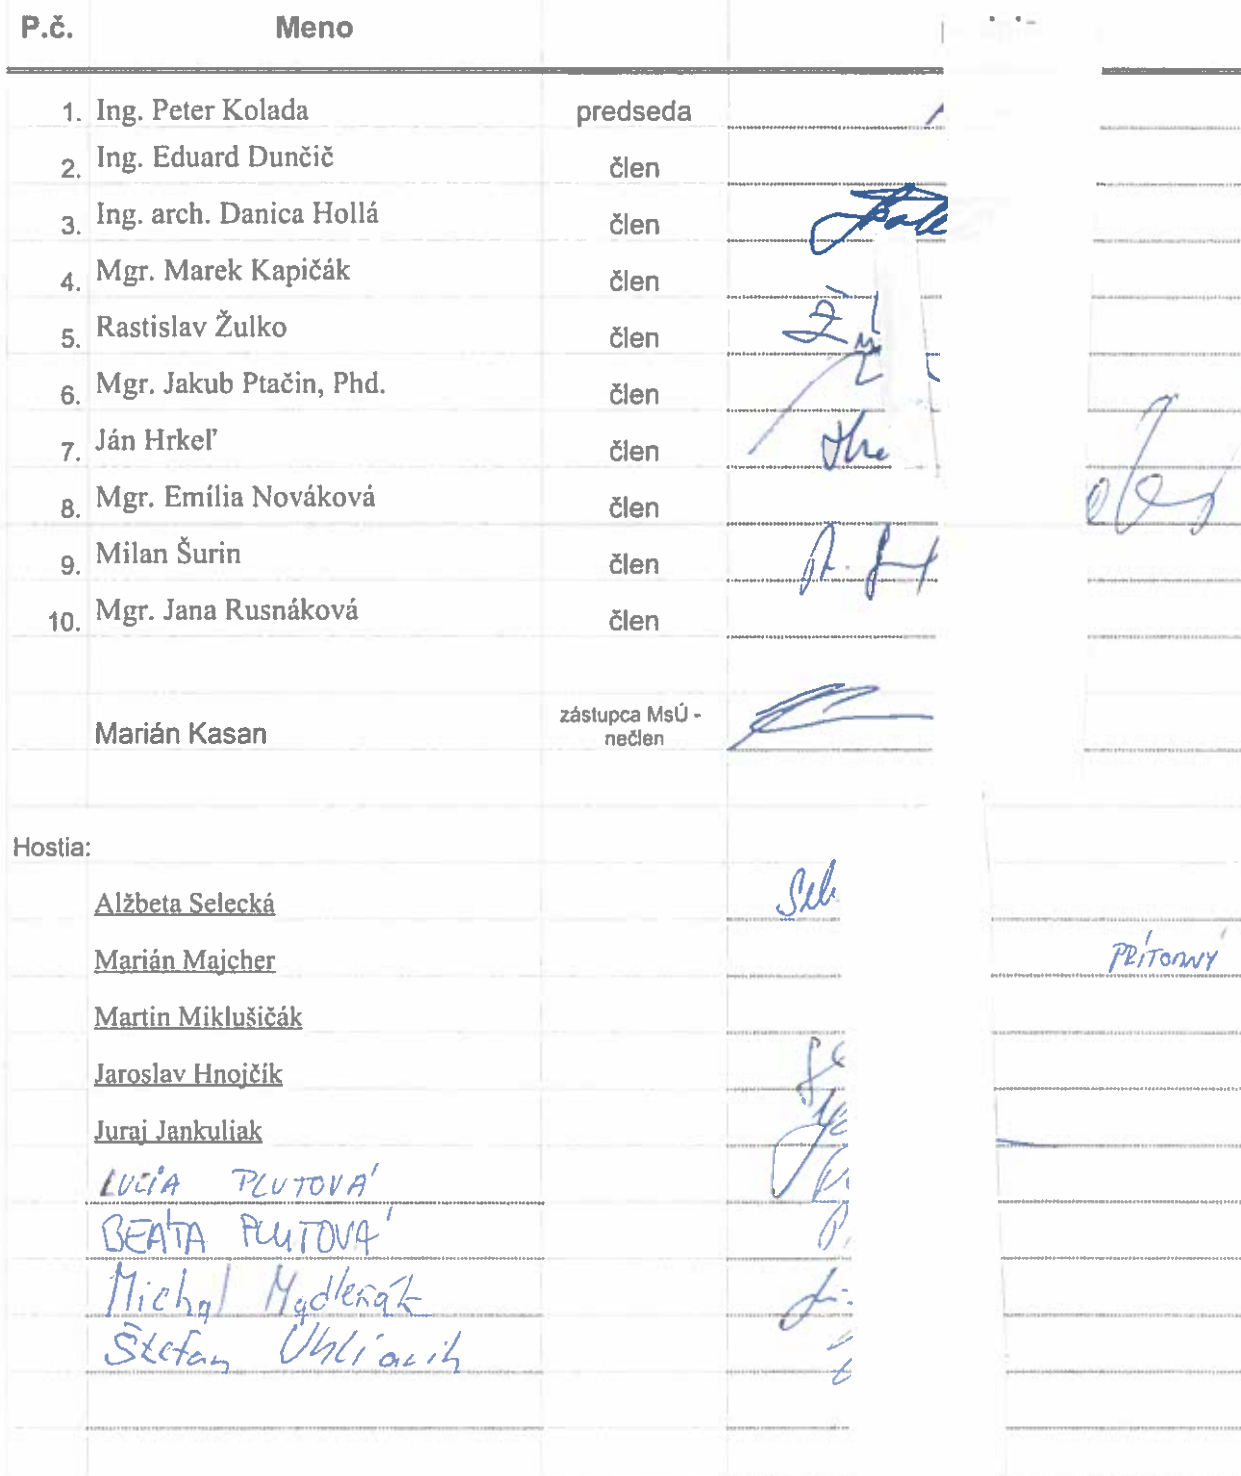 P.č. Meno
1. Ing. Peter Kolada predseda
2. Ing. Eduard Dunčič člen
3. Ing. arch. Danica Hollá člen
4. Mgr. Marek Kapičák člen
5. Rastislav Žulko člen
6. Mgr. Jakub Ptačin, Phd. člen
7. Ján Hrkeľ člen
8. Mgr. Emília Nováková člen
9. Milan Šurin člen
10. Mgr. Jana Rusnáková člen
Marián Kasan zástupca MsÚ -
nečlen
Hostia:
Alžbeta Selecká
Marián Majcher PRÍTOMNÝ
Martin Miklušičák
Jaroslav Hnojčík
Juraj Jankuliak
LUCIA PLUTOVÁ
BEÁTA PLUTOVÁ
Michal Madleňák
Štefan